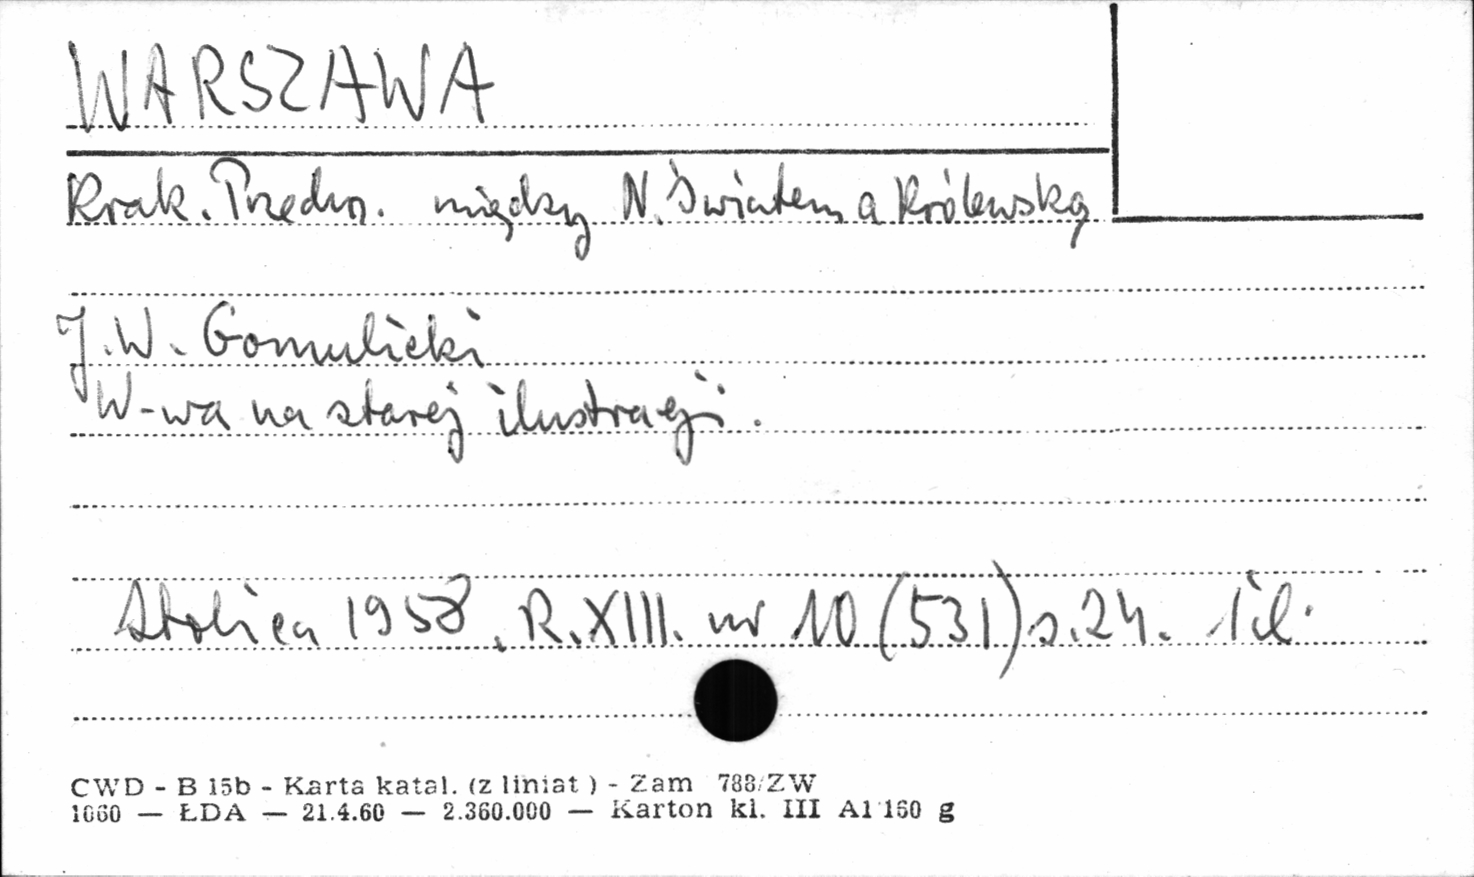 WARSZAWA
Krak. Przedm. między N. Światem a Królewską
J. W. Gomulicki
W-wa na starej ilustracji.
Stolica 1958, R. XIII. nr 10 (531) s. 24. il.
CWD - B 15b - Karta katal. (z liniat ) - Zam 788/ZW
1060 — ŁDA — 21.4.60 — 2.360.000 — Karton kl. III A1 160 g